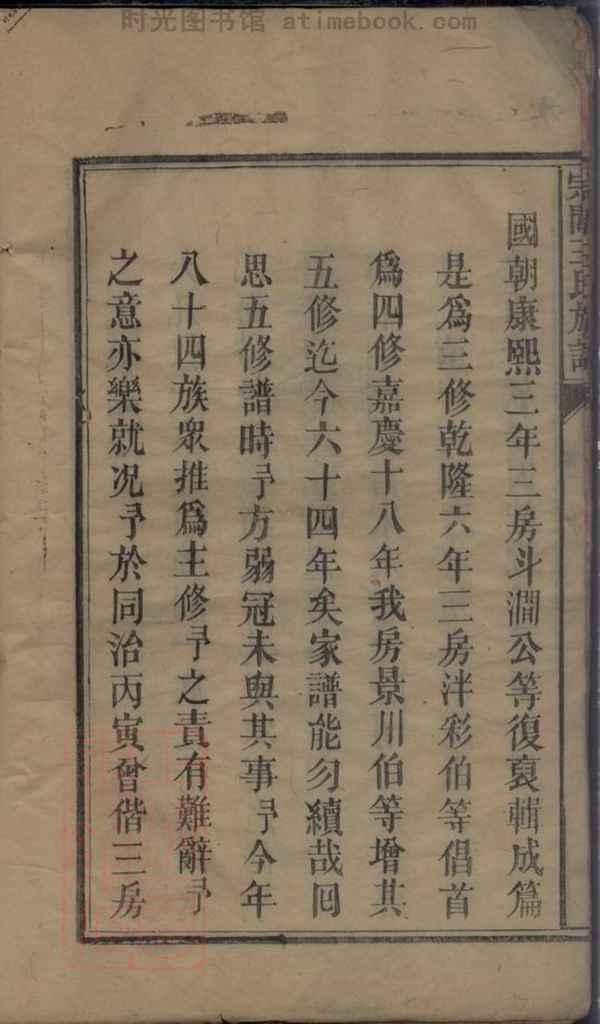 时光图书馆 atimebook.com
國朝康熙三年三房斗澗公等復裒輯成篇
是爲三修乾隆六年三房泮彩伯等倡首
爲四修嘉慶十八年我房景川伯等增其
五修迄今六十四年矣家譜能勿續哉囘
思五修譜時予方弱冠未與其事予今年
八十四族衆推爲主修予之責有難辭予
之意亦樂就况予於同治丙寅曾偕三房
王氏族譜